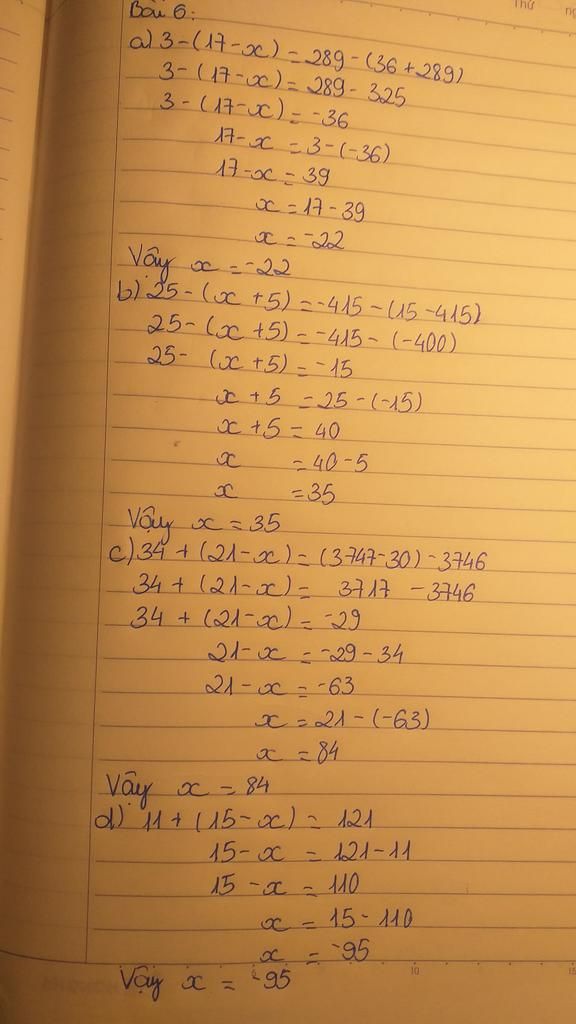 Thứ
Bài 6:
a) 3-(17-x) = 289-(36+289)
3-(17-x) = 289-325
3-(17-x) = -36
17-x = 3-(-36)
17-x = 39
x = 17-39
x = -22
Vậy x = -22
b) 25-(x+5) = -415-(15-415)
25-(x+5) = -415-(-400)
25-(x+5) = -15
x+5 = 25-(-15)
x+5 = 40
x = 40-5
x = 35
Vậy x = 35
c) 34+(21-x) = (3747-30)-3746
34+(21-x) = 3717 - 3746
34+(21-x) = -29
21-x = -29-34
21-x = -63
x = 21-(-63)
x = 84
Vậy x = 84
d) 11+(15-x) = 121
15-x = 121-11
15-x = 110
x = 15-110
x = -95
Vậy x = -95
10
15